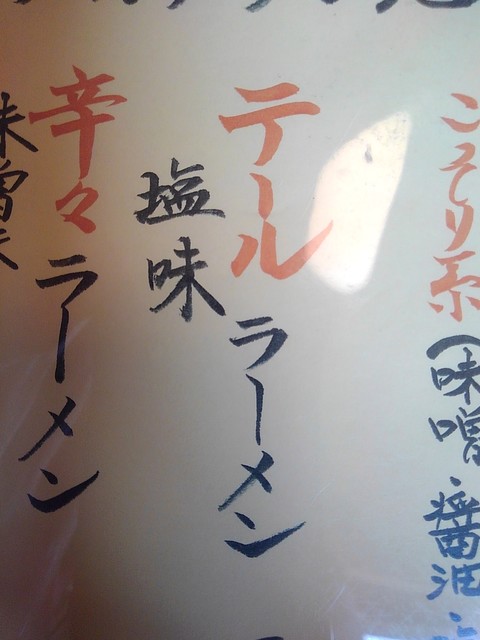 こってり系(味噌・醤油・
テールラーメン
塩味
辛々ラーメン
味噌